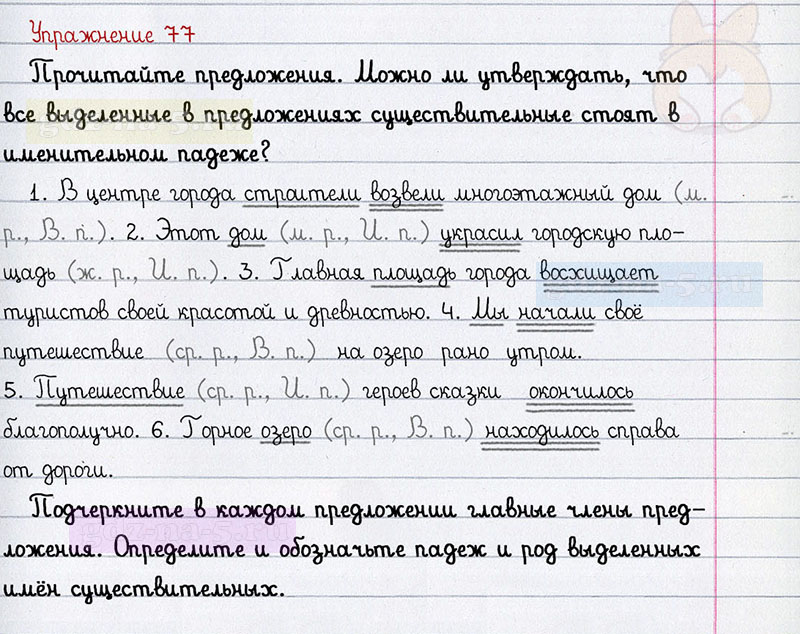 Упражнение 77
Прочитайте предложения. Можно ли утверждать, что
все выделенные в предложениях существительные стоят в
именительном падеже?
1. В центре города строители возвели многоэтажный дом (м.
р., В. п.). 2. Этот дом (м. р., И. п.) украсил городскую пло-
щадь (ж. р., И. п.). 3. Главная площадь города восхищает
туристов своей красотой и древностью. 4. Мы начали своё
путешествие (ср. р., В. п.) на озеро рано утром.
5. Путешествие (ср. р., И. п.) героев сказки окончилось
благополучно. 6. Горное озеро (ср. р., В. п.) находилось справа
от дороги.
Подчеркните в каждом предложении главные члены пред-
ложения. Определите и обозначьте падеж и род выделенных
имён существительных.